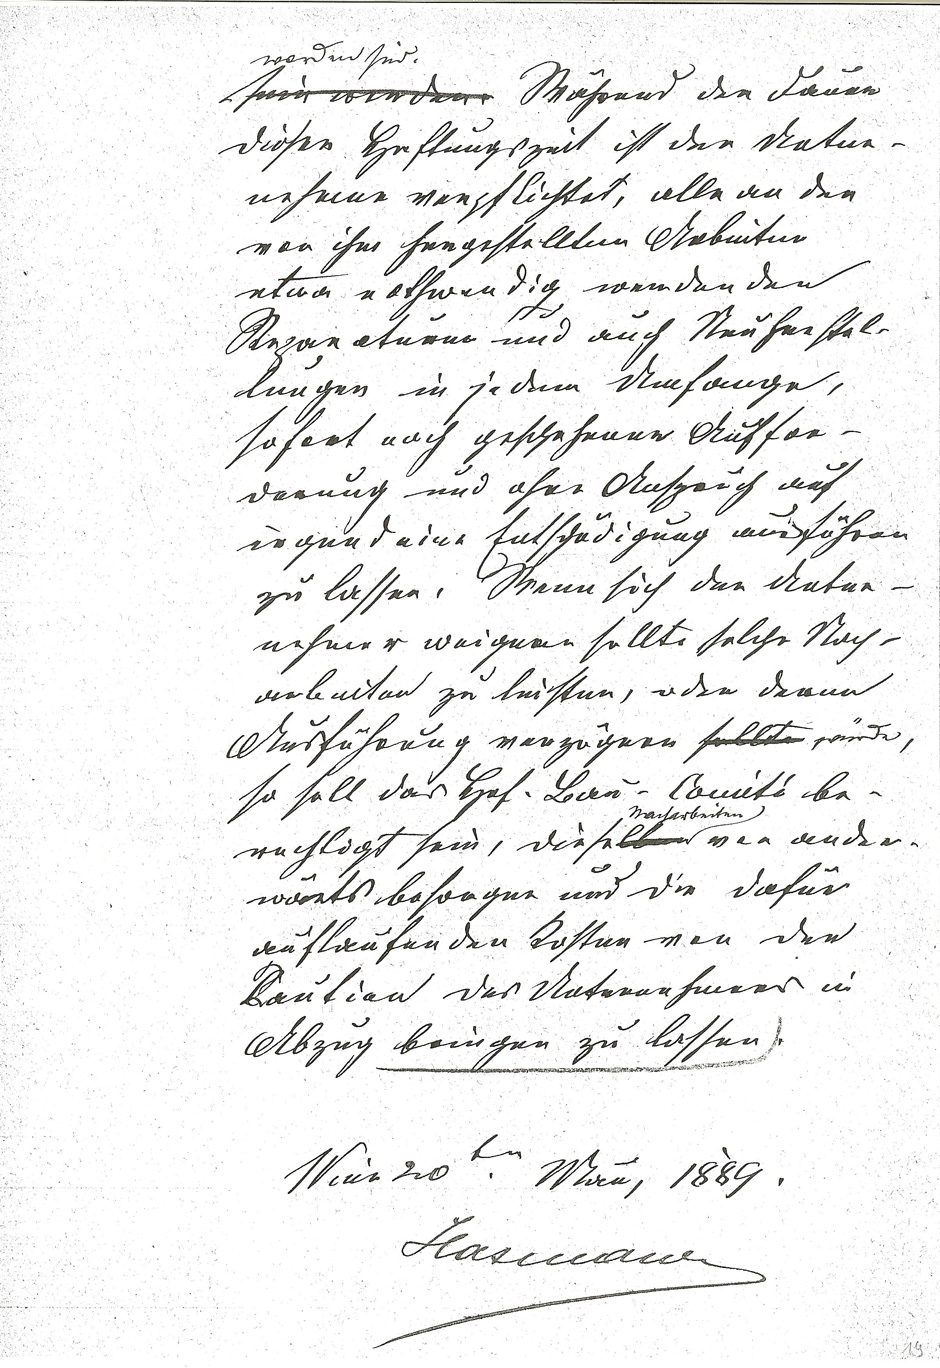 worden sind.
sein werden. Während der Dauer
dieser Haftungszeit ist der Unter-
nehmer verpflichtet, alle an den
von ihm hergestellten Arbeiten
etwa nothwendig werdenden
Reparaturen und auch Neuherstel-
lungen in jedem Umfange,
sofort nach geschehener Auffor-
derung und ohne Anspruch auf
irgend eine Entschädigung ausführen
zu lassen. Wenn sich der Unter-
nehmer weigern sollte solche Nach-
arbeiten zu leisten, oder deren
Ausführung verzögern sollte würde,
so soll das Hof-Bau-Comité be-
Nacharbeiten
rechtigt sein, dieselben von ander-
wärts besorgen und die dafür
auflaufenden Kosten von der
Caution des Unternehmers in
Abzug bringen zu lassen.
Wien 20ten. 1889.
Hasenauer
19